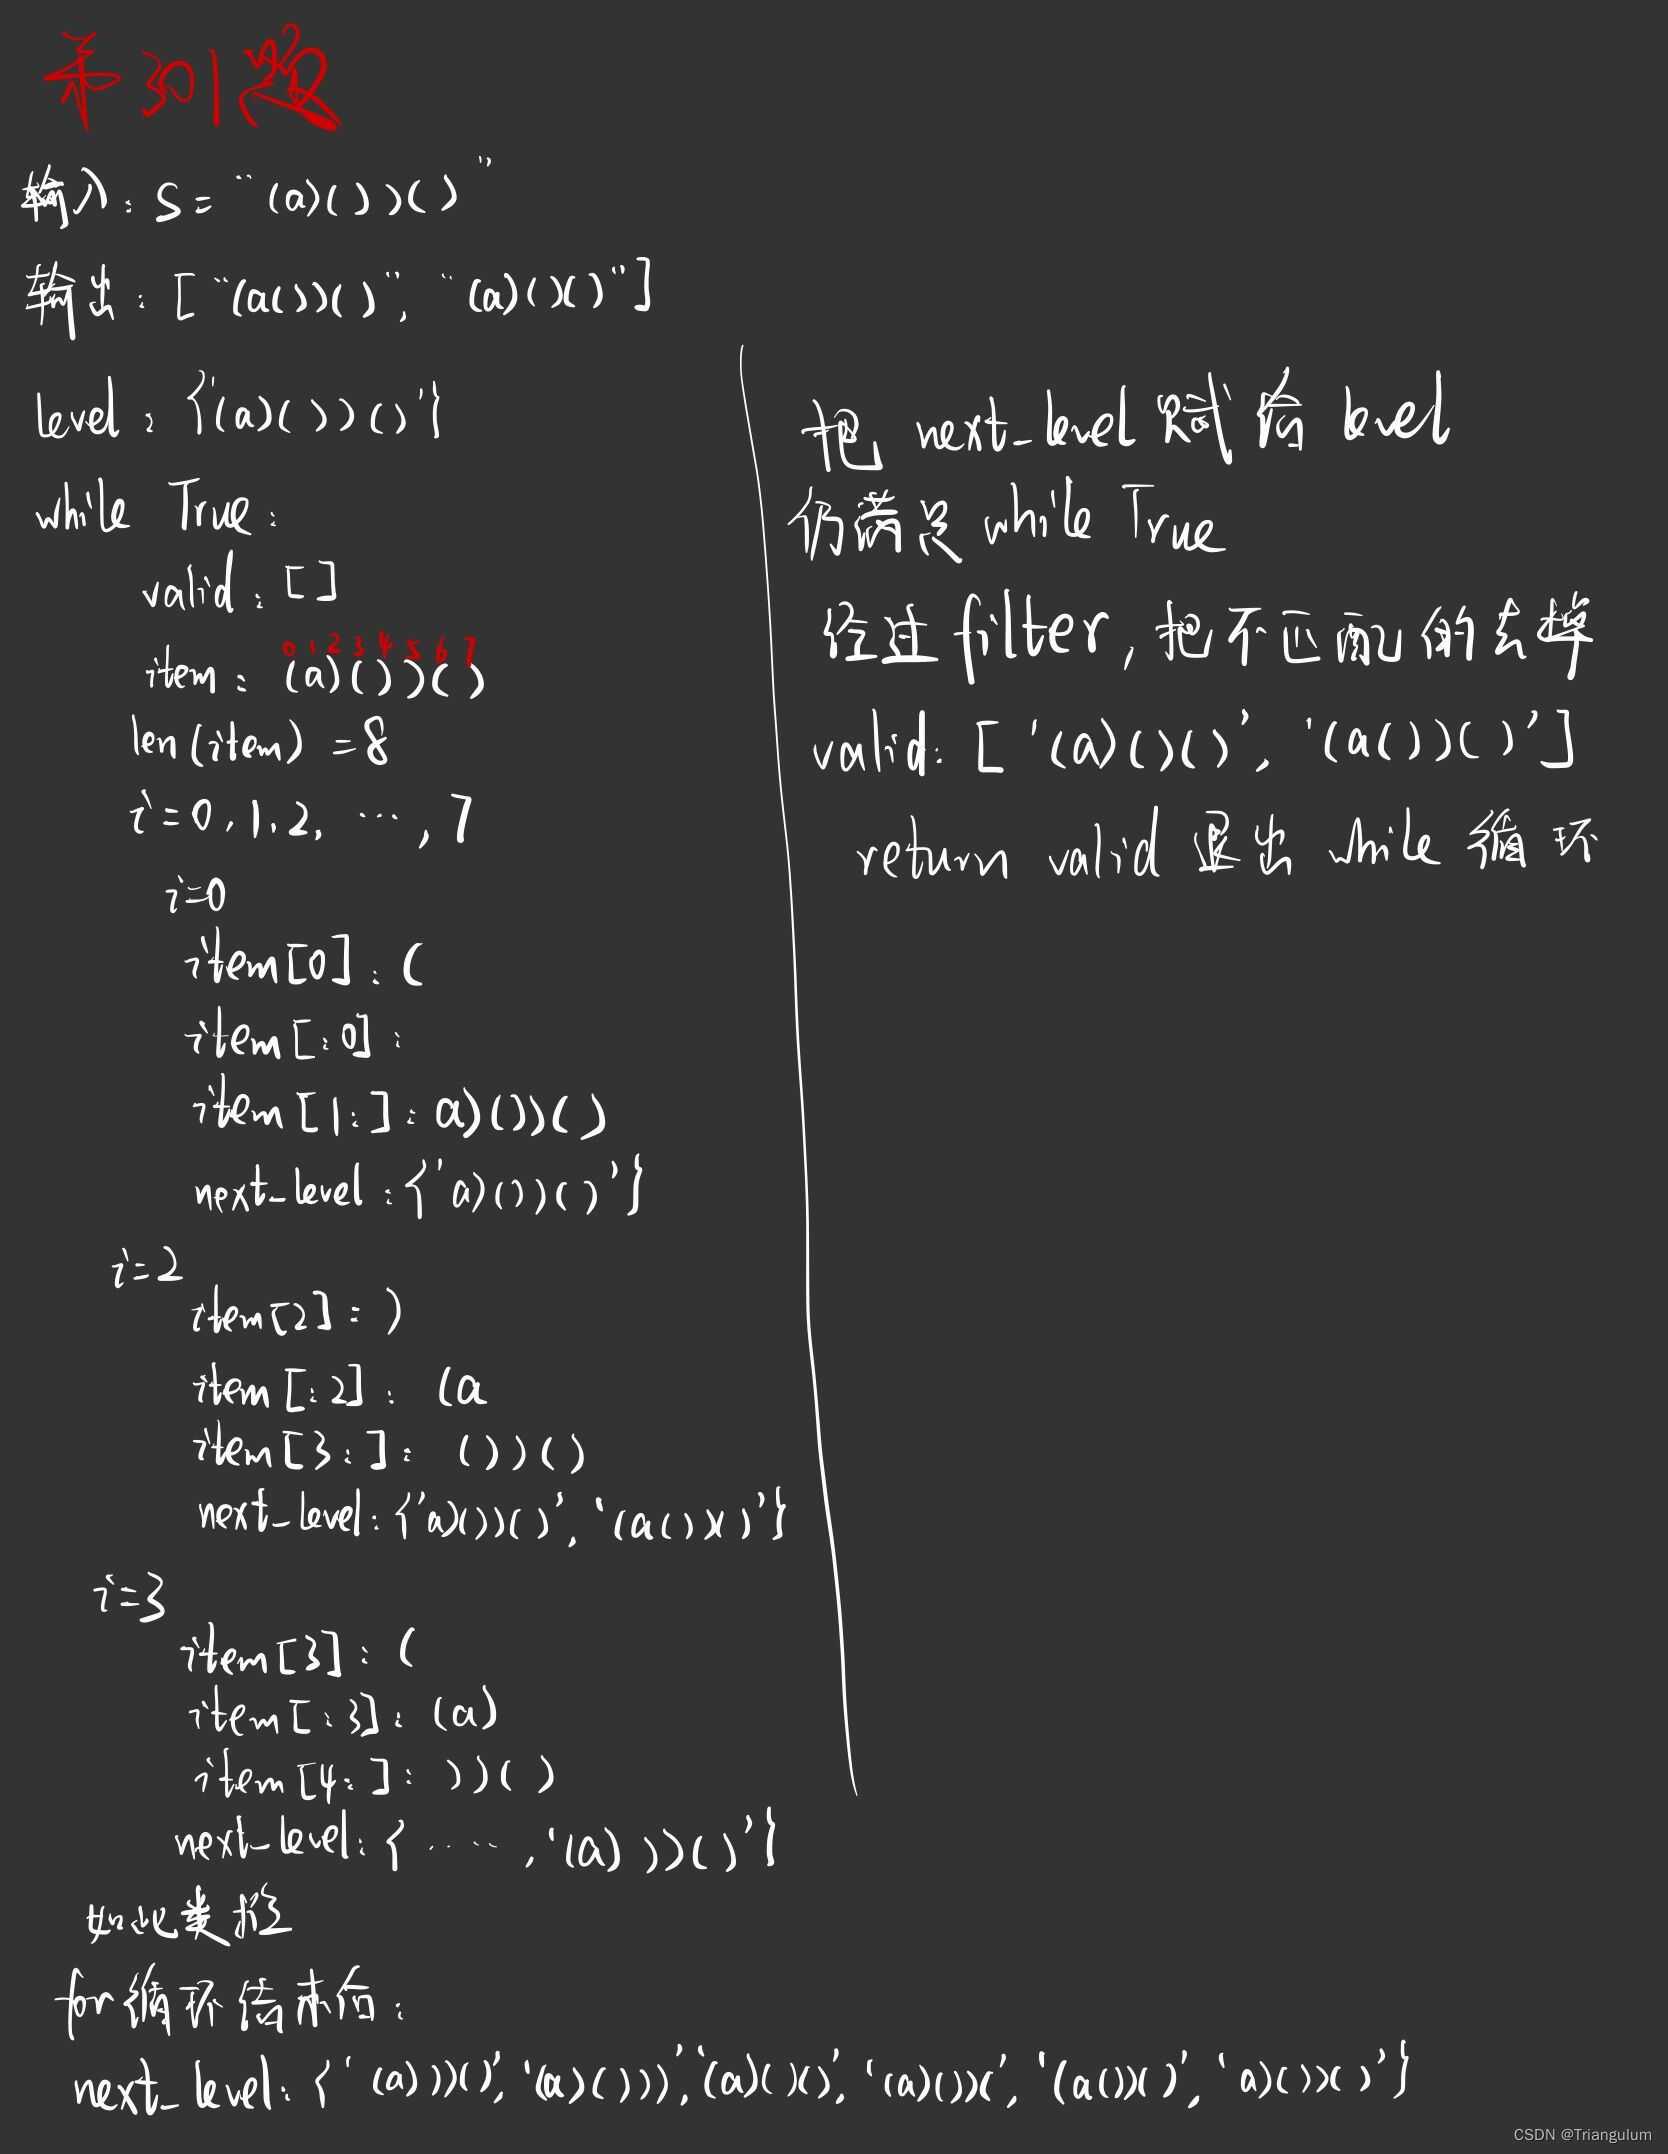 第301题
输入: S = "(a)())()"
输出: ["(a())()", "(a)()()"]
level: {'(a)())()'}
while True:
valid: []
0 1 2 3 4 5 6 7
item: (a)())()
len(item) = 8
i = 0, 1, 2, ..., 7
i=0
item[0]: (
item[:0]:
item[1:]: a)())()
next_level: {'a)())()'}
i=2
item[2]: )
item[:2]: (a
item[3:]: ())()
next_level: {'a)())()', '(a())()'}
i=3
item[3]: (
item[:3]: (a)
item[4:]: ))()
next_level: {....., '(a)))()'}
如此类推
for循环结束后:
next_level: {'(a)))()', '(a)()))', '(a)()()', '(a)())(', '(a())()', 'a)())()'}
把 next_level 赋给 level
仍满足 while True
经过 filter, 把不匹配的去掉
valid: ['(a)()()', '(a())()']
return valid 退出 while 循环
CSDN @Triangulum